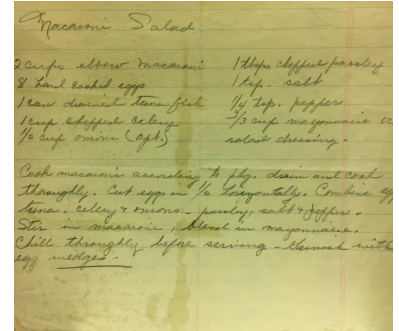 Macaroni Salad
2 cups elbow macaroni
8 hard cooked eggs
1 can drained tuna fish
1 cup chopped celery
1/2 cup onions (opt.)
1 tbsps chopped parsley
1 tsp. salt
1/4 tsp. pepper
2/3 cup mayonnaise or
salad dressing.
Cook macaroni according to pkg. drain and cool
thoroughly. Cut eggs in 1/2 horizontally. Combine egg
tuna - celery & onions - parsley, salt & pepper.
Stir in macaroni, blend in mayonnaise.
Chill throughly before serving - Garnish with
egg wedges -